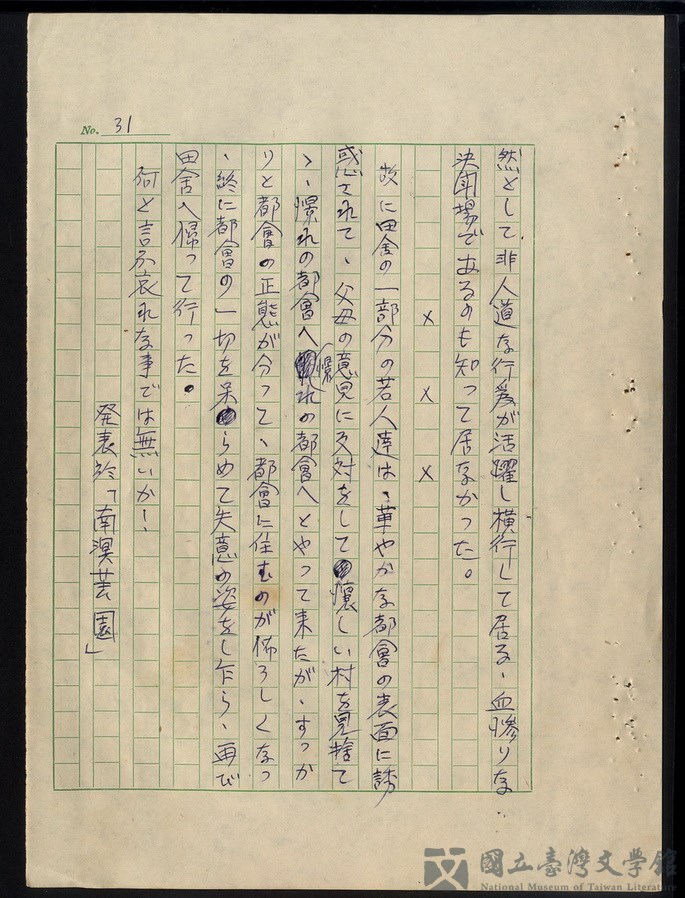 No. 31
然として、非人道な行爲が活躍し横行して居る、血惨りな
決鬪場であるのも知って居なかった。
× × ×
故に田舍の一部分の若人達は、華やかな都會の表面に誘
惑されて、父母の意見に反対をして懷しい村を見捨て
ゝ、憬れの都會へ憬れの都會へとやって来たが、すっか
りと都會の正態が分って、都會に住むのが怖ろしくなっ
、終に都會の一切を呆らめて失意の姿をし乍ら、再び
田舍へ帰って行った。
何と言ふ哀れな事では無いか！
発表於「南溟芸園」
國立臺灣文學館
National Museum of Taiwan Literature